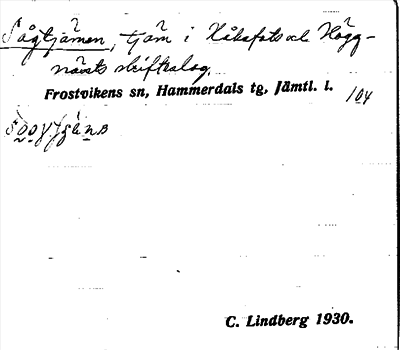 Sågtjärnen, tjärn i Håkafots och Högg-
näsets skifteslag.
Frostvikens sn, Hammerdals tg, Jämtl. l.
104
C. Lindberg 1930.